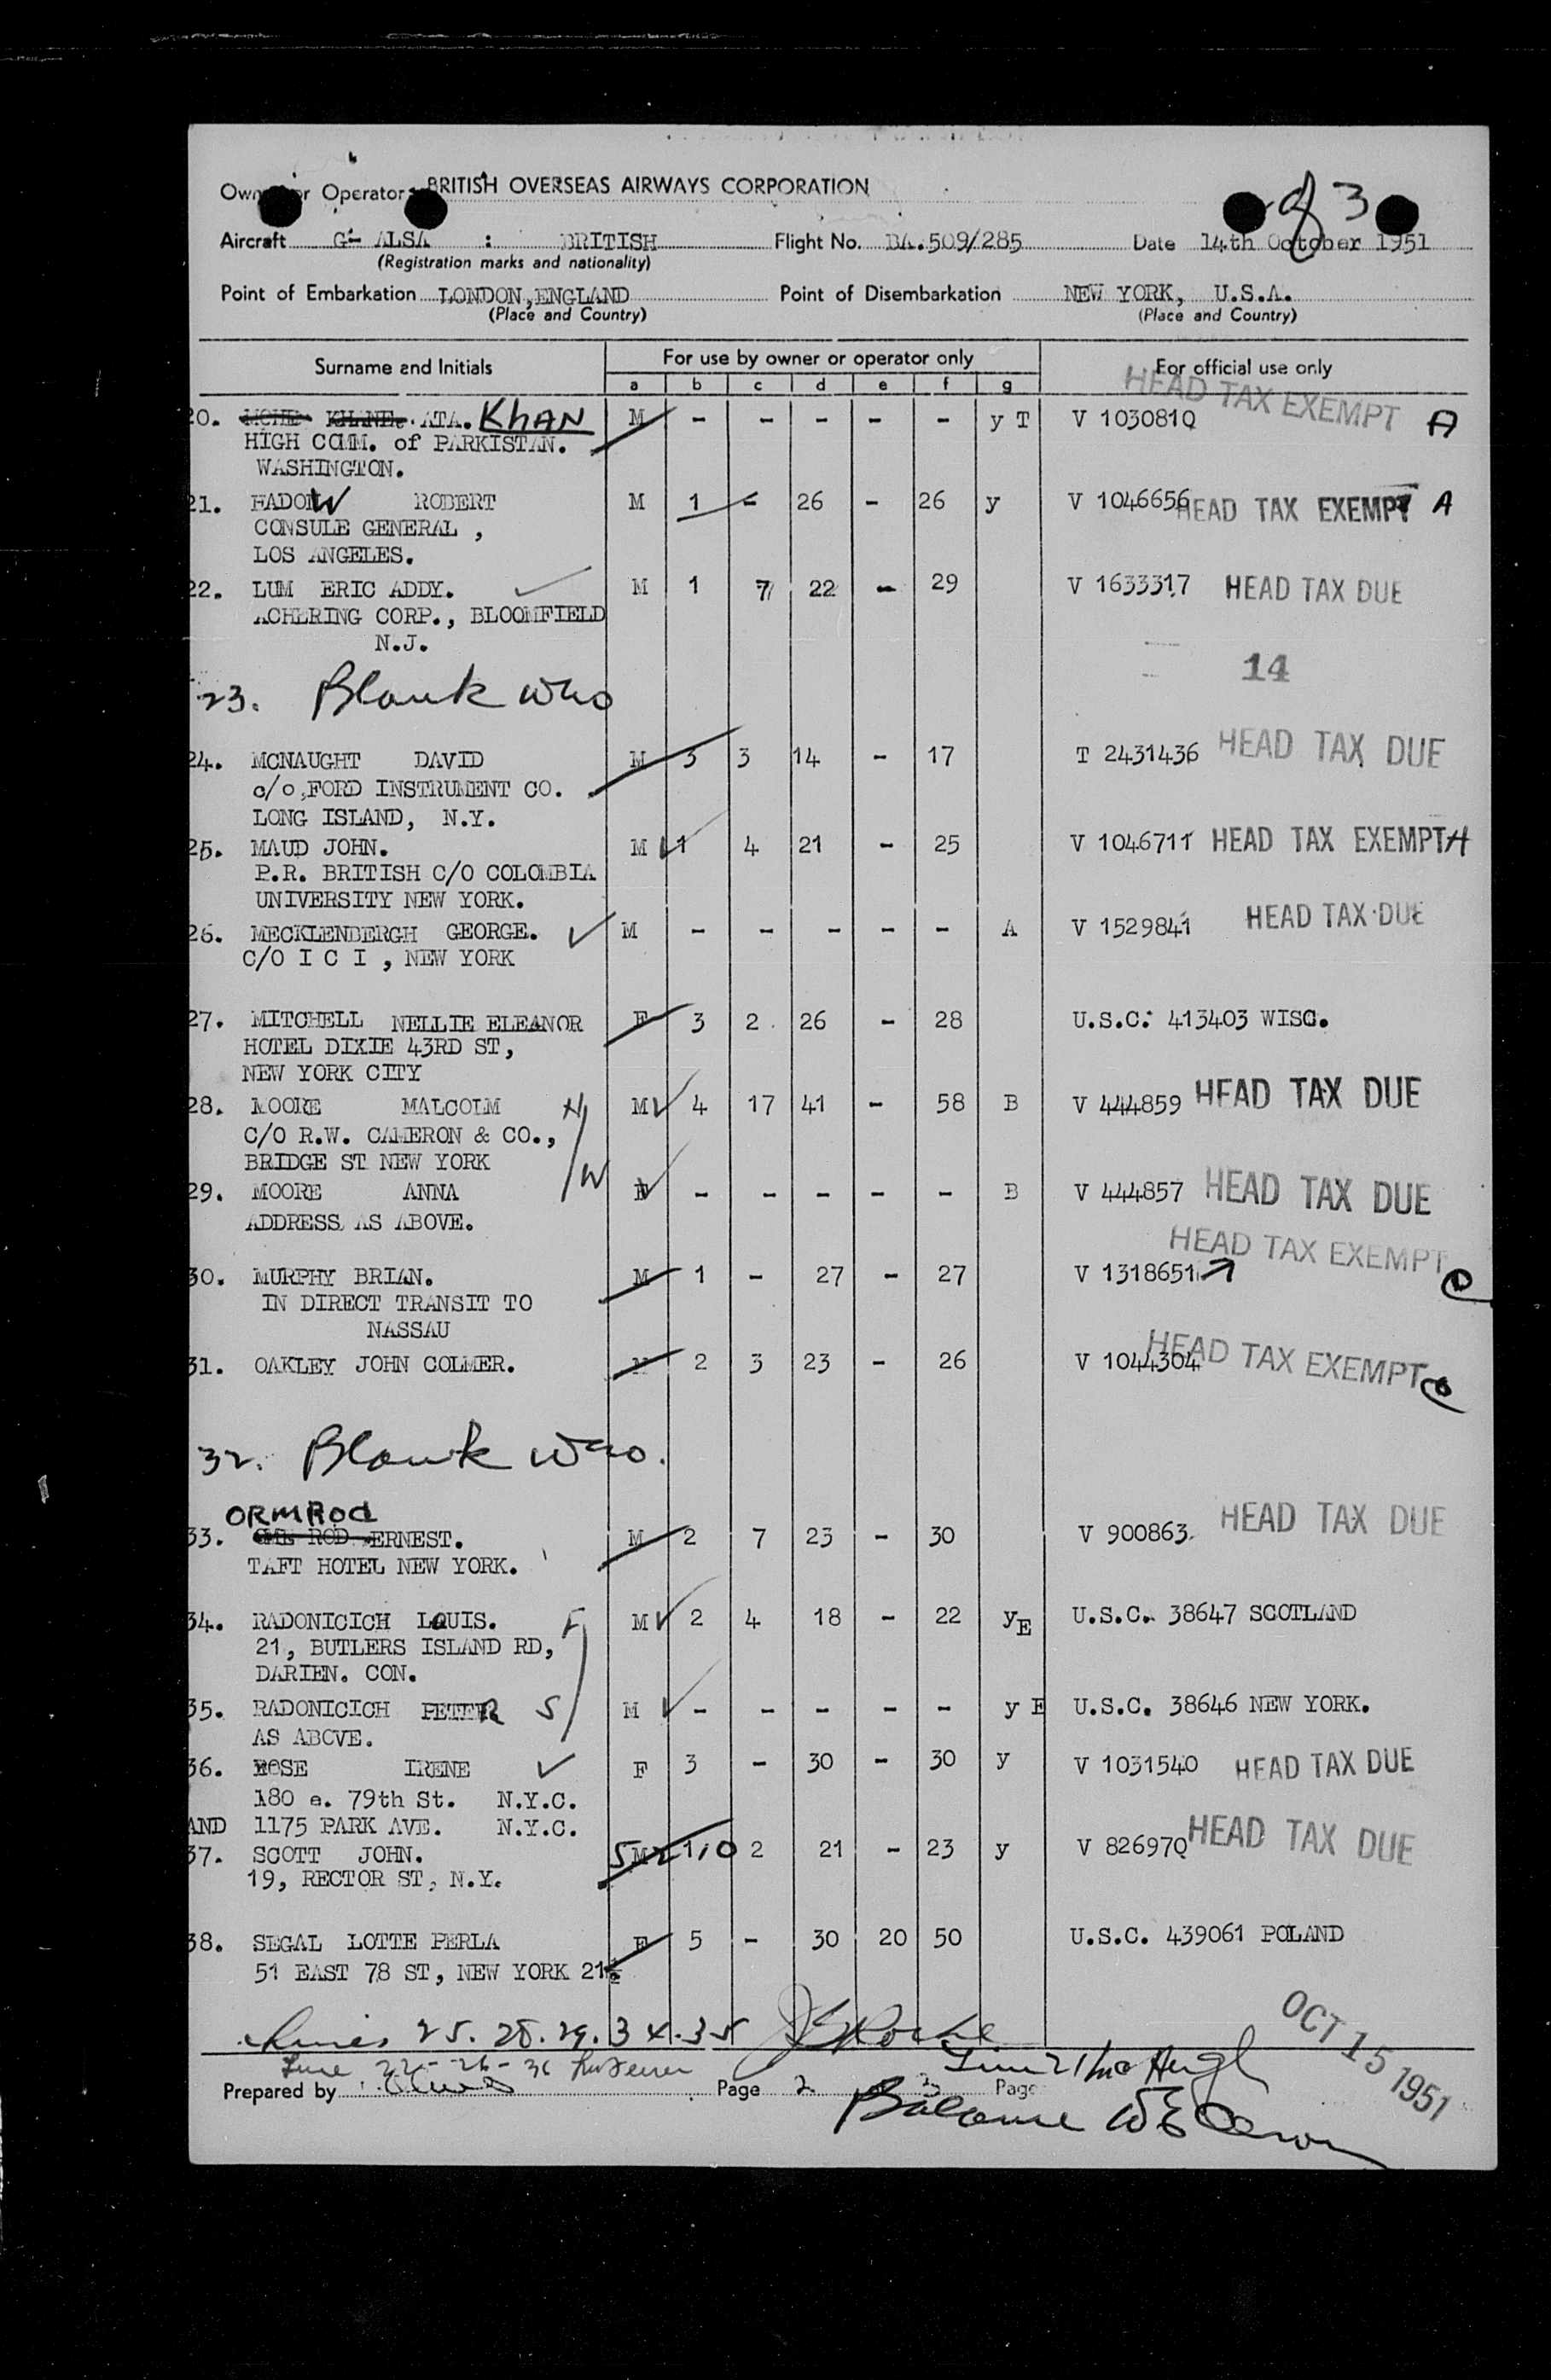 Owner or Operator BRITISH OVERSEAS AIRWAYS CORPORATION
of 3
Aircraft G- ALSA : BRITISH Flight No. BA.509/285 Date 14th October 1951
(Registration marks and nationality)
Point of Embarkation LONDON,ENGLAND Point of Disembarkation NEW YORK, U.S.A.
(Place and Country) (Place and Country)
Surname and Initials For use by owner or operator only For official use only
a b c d e f g
HEAD TAX EXEMPT A
20. ATA. KHAN M - - - - - y T V 103081Q
HIGH COMM. of PARKISTAN.
WASHINGTON.
21. HADOW ROBERT M 1 - 26 - 26 y V 1046656 HEAD TAX EXEMPT A
CONSULE GENERAL ,
LOS ANGELES.
22. LUM ERIC ADDY. M 1 7 22 - 29 V 1633317 HEAD TAX DUE
ACHERING CORP., BLOOMFIELD
N.J.
14
23. Blank who
24. MCNAUGHT DAVID M 3 3 14 - 17 T 2431436 HEAD TAX DUE
c/o,FORD INSTRUMENT CO.
LONG ISLAND, N.Y.
25. MAUD JOHN. M 1 4 21 - 25 V 1046711 HEAD TAX EXEMPT A
P.R. BRITISH C/O COLOMBIA
UNIVERSITY NEW YORK.
26. MECKLENBERGH GEORGE. M - - - - - A V 1529841 HEAD TAX DUE
C/O I C I , NEW YORK
27. MITCHELL NELLIE ELEANOR F 3 2 26 - 28 U.S.C. 413403 WISC.
HOTEL DIXIE 43RD ST,
NEW YORK CITY
28. MOORE MALCOLM H M 4 17 41 - 58 B V 444859 HEAD TAX DUE
C/O R.W. CAMERON & CO.,
BRIDGE ST NEW YORK
29. MOORE ANNA W F - - - - - B V 444857 HEAD TAX DUE
ADDRESS AS ABOVE.
HEAD TAX EXEMPT
30. MURPHY BRIAN. M 1 - 27 - 27 V 1318651
IN DIRECT TRANSIT TO
NASSAU
31. OAKLEY JOHN COLMER. M 2 3 23 - 26 V 1044304 HEAD TAX EXEMPT
32. Blank who.
ORMROd
33. OML ROD ERNEST. M 2 7 23 - 30 V 900863. HEAD TAX DUE
TAFT HOTEL NEW YORK.
34. RADONICICH LOUIS. F M 2 4 18 - 22 yE U.S.C. 38647 SCOTLAND
21, BUTLERS ISLAND RD,
DARIEN. CON.
35. RADONICICH PETER S M - - - - - y E U.S.C. 38646 NEW YORK.
AS ABOVE.
36. ROSE IRENE F 3 - 30 - 30 y V 1031540 HEAD TAX DUE
180 e. 79th St. N.Y.C.
AND 1175 PARK AVE. N.Y.C.
37. SCOTT JOHN. M 1 2 21 - 23 y V 82697Q HEAD TAX DUE
19, RECTOR ST, N.Y.
38. SEGAL LOTTE PERLA F 5 - 30 20 50 U.S.C. 439061 POLAND
51 EAST 78 ST, NEW YORK 21.
Lines 25. 28. 29. 34. 35
OCT 15 1951
Line 22 - 26 - 36
Prepared by Page 2 3 Page
Balance